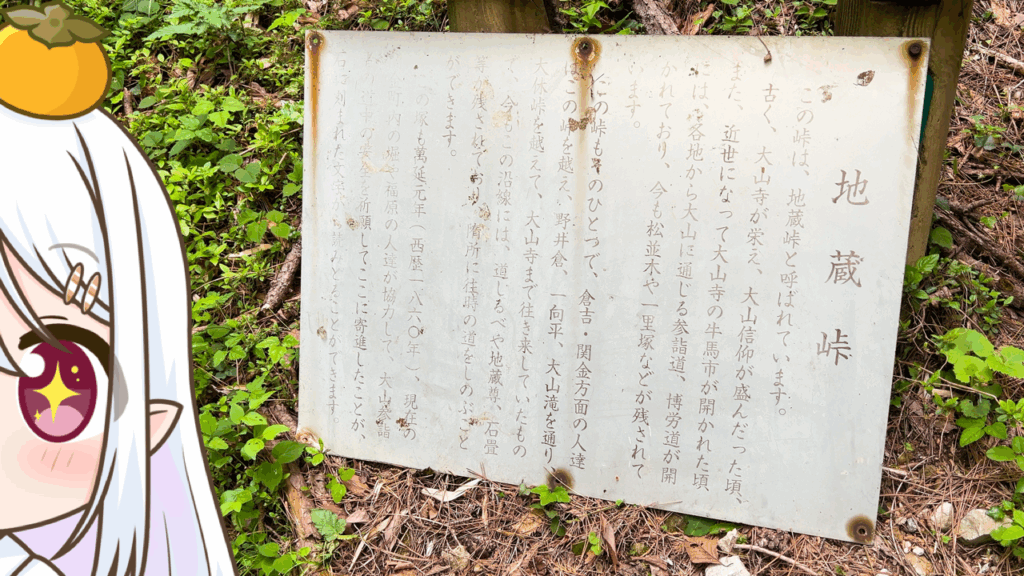 地蔵峠
この峠は、地蔵峠と呼ばれています。
古く、大山寺が栄え、大山信仰が盛んだった頃、
また、近世になって大山寺の牛馬市が開かれた頃
には、各地から大山に通じる参詣道、博労道が開
かれており、今も松並木や一里塚などが残されて
います。
この峠も、そのひとつで、倉吉・関金方面の人達
はこの峠を越え、野井倉、一向平、大山滝を通り
大休峠を越えて、大山寺まで往き来していたもの
で、今もこの沿線には、道しるべや地蔵尊、石畳
残され ており、随所に往時の道をしのぶこと
ができます。
の塚も萬延元年(西暦一八六〇年)、現在の
町内の堀、福原の人達が協力して、大山参詣
を祈願してここに寄進したことが、
刻まれた文 ことができます。